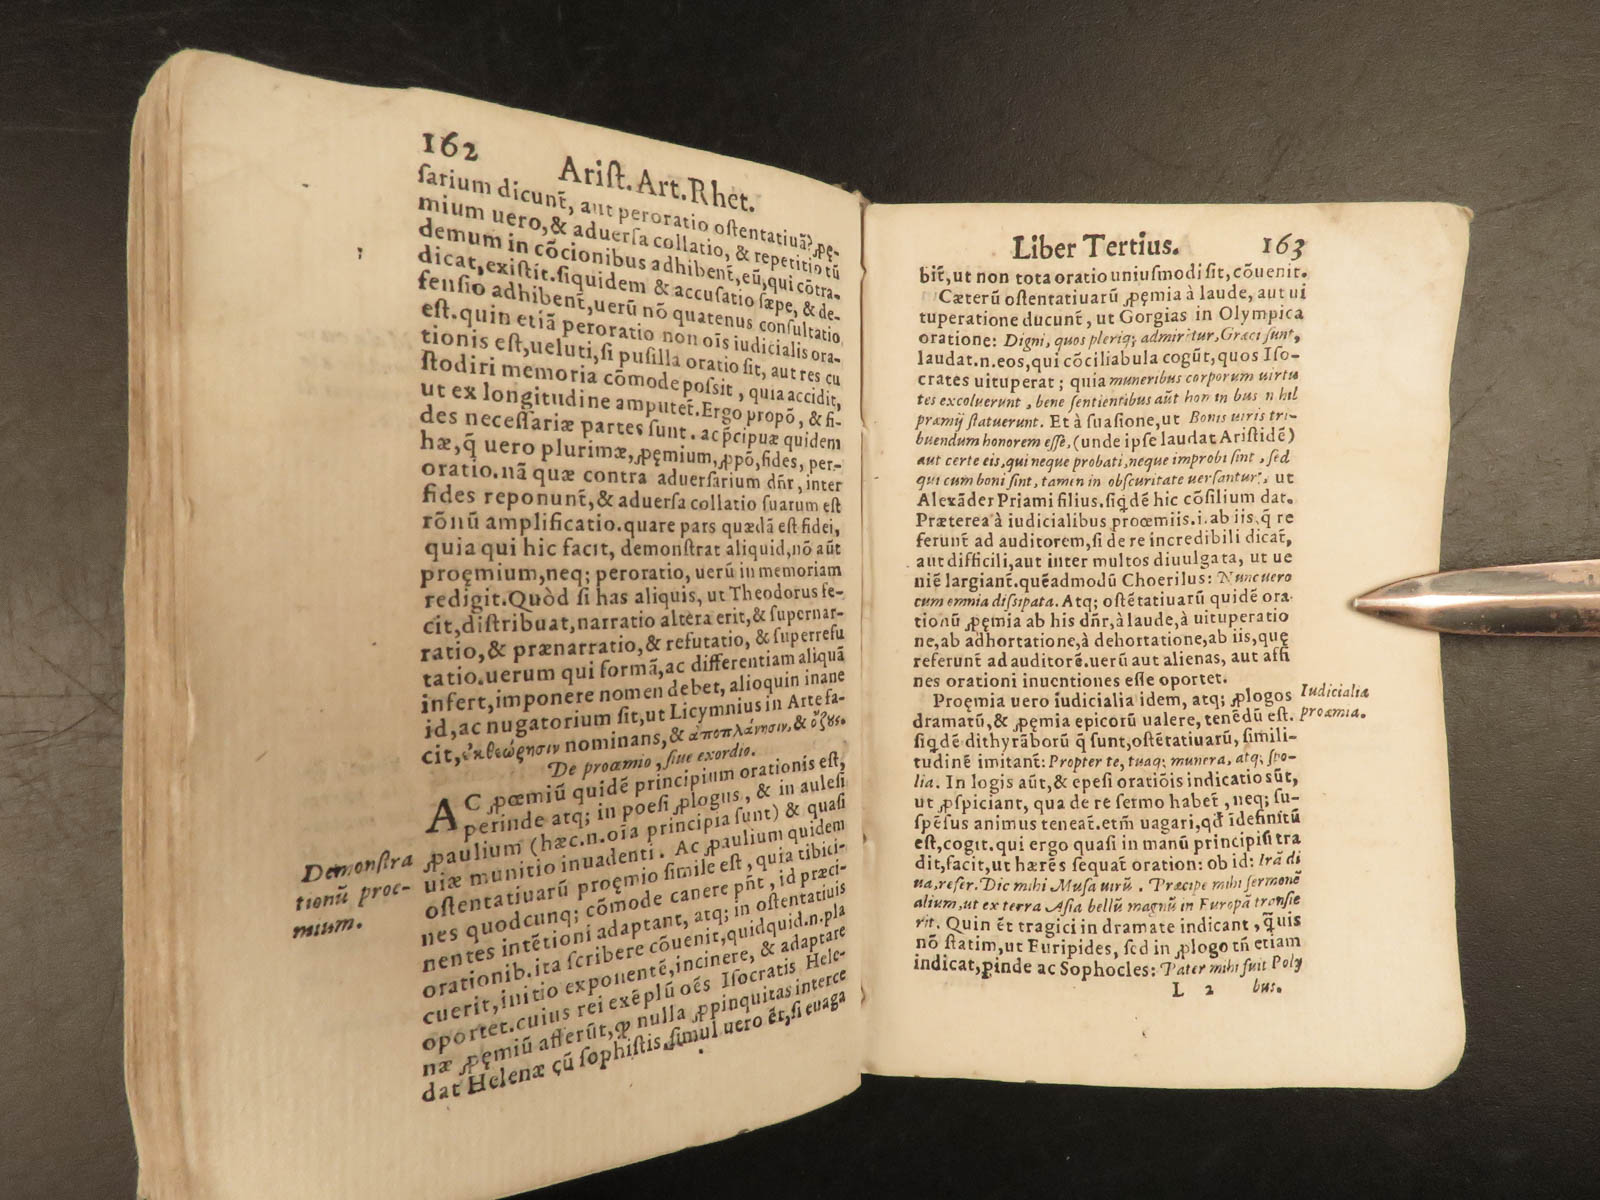 162
Arist. Art. Rhet.
sarium dicunt̃, aut peroratio ostentatiuã? ꝓę-
mium uero, & aduersa collatio, & repetitio tũ
demum in cõcionibus adhibent̃, eũ, qui cõtra-
dicat, existit. siquidem & accusatio sæpe, & de-
fensio adhibent̃, uerũ nõ quatenus consultatio
est. quin etiã peroratio non oĩs iudicialis ora-
tionis est, ueluti, si pusilla oratio sit, aut res cu
stodiri memoria cõmode possit, quia accidit,
ut ex longitudine amputet̃. Ergo propõ, & fi-
des necessariæ partes sunt. ac p̃cipuæ quidem
hæ, q̃ uero plurimæ, ꝓęmium, ꝓpõ, fides, per-
oratio. nã quæ contra aduersarium dñr, inter
fides reponunt̃, & aduersa collatio suarum est
rõnũ amplificatio. quare pars quædã est fidei,
quia qui hic facit, demonstrat aliquid, nõ aũt
proęmium, neq; peroratio, uerũ in memoriam
redigit. Quòd si has aliquis, ut Theodorus fe-
cit, distribuat, narratio altera erit, & supernar-
ratio, & prænarratio, & refutatio, & superrefu
tatio. uerum qui formã, ac differentiam aliquã
infert, imponere nomen debet, alioquin inane
id, ac nugatorium sit, ut Licymnius in Arte fa-
cit, nominans, & ἀποπλάνησιν, & ὄζους.
De proœmio, siue exordio.
AC ꝓœmiũ quidẽ principium orationis est,
perinde atq; in poesi ꝓlogus, & in aulesi
ꝓaulium (hæc.n.oĩa principia sunt) & quasi
uiæ munitio inuadenti. Ac ꝓaulium quidem
ostentatiuarũ proęmio simile est, quia tibici-
nes quodcunq; cõmode canere pñt, id præci-
nentes intẽtioni adaptant, atq; in ostentatiuis
orationib. ita scribere cõuenit, quidquid.n.pla
cuerit, initio exponentẽ, incinere, & adaptare
oportet. cuius rei exẽplũ oẽs Isocratis Hele-
næ ꝓęmiũ afferũt, ꝙ nulla ꝓpinquitas interce
dat Helenæ cũ sophistis. simul uero ẽt, si euaga
Demonstra
tionũ proœ-
mium.
Liber Tertius. 163
bit̃, ut non tota oratio uniusmodi sit, cõuenit.
Cæterũ ostentatiuarũ ꝓęmia à laude, aut ui
tuperatione ducunt̃, ut Gorgias in Olympica
oratione: Digni, quos pleriq; admirẽtur, Græci sunt,
laudat.n.eos, qui cõciliabula cogũt, quos Iso-
crates uituperat; quia muneribus corporum uirtu
tes excoluerunt, bene sentientibus aũt hominibus nihil
præmij statuerunt. Et à suasione, ut Bonis uiris tri-
buendum honorem esse, (unde ipse laudat Aristidẽ)
aut certe eis, qui neque probati, neque improbi sint, sed
qui cum boni sint, tamen in obscuritate uersantur, ut
Alexãder Priami filius. siq̃dẽ hic cõsilium dat.
Præterea à iudicialibus proœmiis.i. ab iis, q̃ re
ferunt̃ ad auditorem, si de re incredibili dicat̃,
aut difficili, aut inter multos diuulgata, ut ue
niẽ largiant̃. quẽadmodũ Choerilus: Nunc uero
cum omnia dissipata. Atq; ostẽtatiuarũ quidẽ ora-
tionũ ꝓęmia ab his dñr, à laude, à uituperatio
ne, ab adhortatione, à dehortatione, ab iis, quę
referunt ad auditorẽ. uerũ aut alienas, aut affi
nes orationi inuentiones esse oportet.
Proęmia uero iudicialia idem, atq; ꝓlogos
dramatũ, & ꝓęmia epicorũ ualere, tenẽdũ est.
siq̃dẽ dithyrãborũ q̃ sunt, ostẽtatiuarũ, simili-
tudinẽ imitant̃: Propter te, tuaq; munera, atq; spo-
lia. In logis aũt, & epesi oratiõis indicatio sũt,
ut ꝓspiciant, qua de re sermo habet̃, neq; su-
spẽsus animus teneat̃. etm̃ uagari, qđ idefinitũ
est, cogit. qui ergo quasi in manũ principiũ tra
dit, facit, ut hærẽs sequat̃ oration: ob id: Irã di
ua, refer. Dic mihi Musa uirũ. Præcipe mihi sermonẽ
alium, ut ex terra Asia bellũ magnũ in Europã transie
rit. Quin ẽt tragici in dramate indicant, q̃uis
nõ statim, ut Euripides, sed in ꝓlogo tñ etiam
indicat, ꝑinde ac Sophocles: Pater mihi fuit Poly
L 2 bus.
Iudicialia
proœmia.